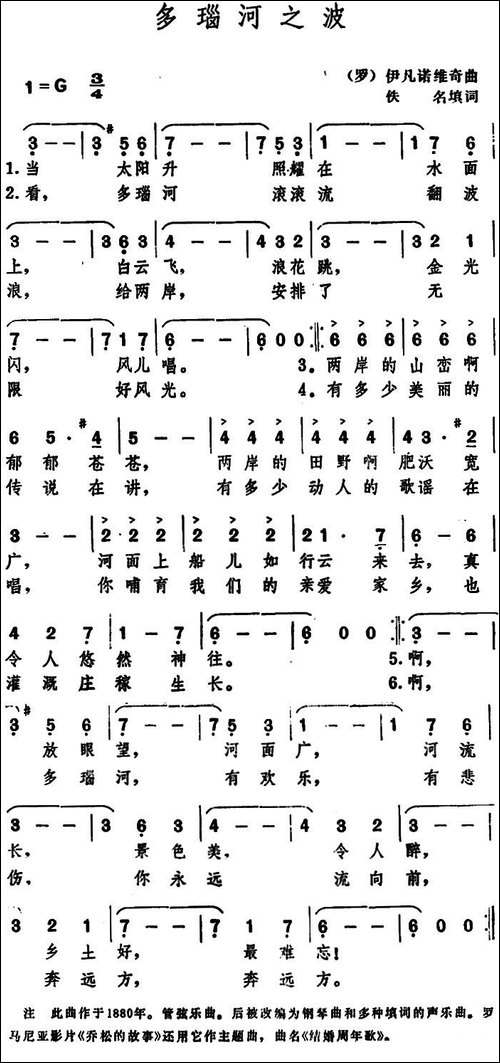 多瑙河之波
1=G 3/4
（罗）伊凡诺维奇曲
佚 名填词
3 - - | 3 #5 6 | 7 - - | 7 5 3 | 1 - - | 1 7 6
1.当 太阳升 照耀在 水面
2.看， 多瑙河 滚滚流 翻波
3 - - | 3 6 3 | 4 - - | 4 3 2 | 3 - - | 3 2 1
上， 白云飞， 浪花跳， 金光
浪， 给两岸， 安排了 无
7 - - | 7 1 7 | 6 - - | 6 0 0 :| 6 6 6 | 6 6 6
闪， 风儿唱。 3。两岸的山峦啊
限 好风光。 4。有多少美丽的
6 5 · #4 | 5 - - | 4 4 4 | 4 4 4 | 4 3 · #2
郁郁苍苍， 两岸的田野啊肥沃宽
传说在讲， 有多少动人的歌谣在
3 - - | 2 2 2 | 2 2 2 | 2 1 · 7 | 6 - 6
广， 河面上船儿如行云来去，真
唱， 你哺育我们的亲爱家乡，也
4 2 7 | 1 - 7 | 6 - - | 6 0 0 :| 3 - -
令人悠然神往。 5.啊，
灌溉庄稼生长。 6.啊，
3 #5 6 | 7 - - | 7 5 3 | 1 - - | 1 7 6
放眼望， 河面广， 河流
多瑙河， 有欢乐， 有悲
3 - - | 3 6 3 | 4 - - | 4 3 2 | 3 - -
长， 景色美， 令人醉，
伤， 你永远 流向前，
3 2 1 | 7 - - | 7 1 7 | 6 - - | 6 0 0 :|
乡土好， 最难忘！
奔远方， 奔远方。
注 此曲作于1880年。管弦乐曲。后被改编为钢琴曲和多种填词的声乐曲。罗
马尼亚影片《乔松的故事》还用它作主题曲，曲名《结婚周年歌》。